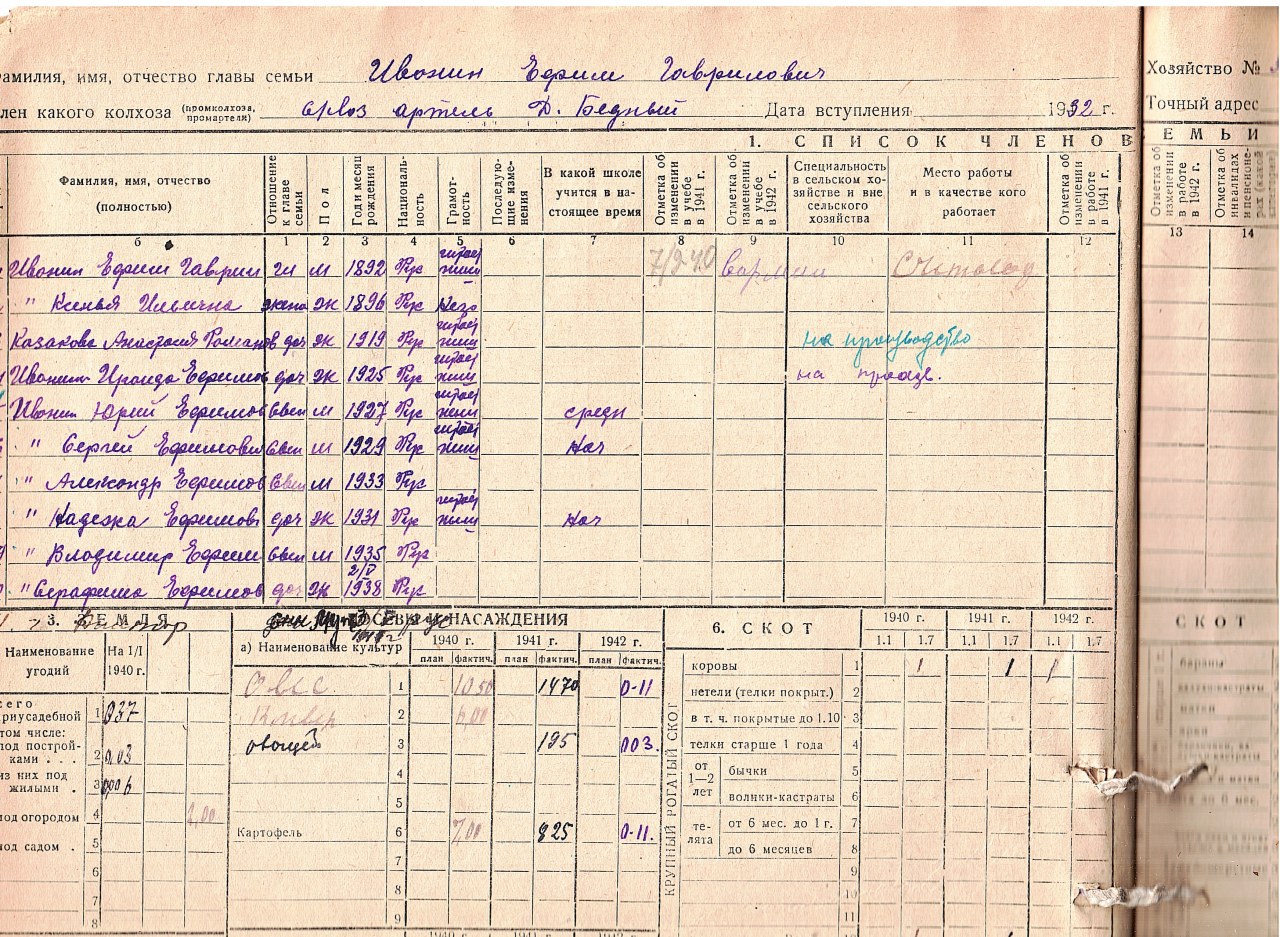 Фамилия, имя, отчество главы семьи Ивонин Ефрим Гаврилович
Хозяйство №
член какого колхоза (промколхоза, промартели) артель Д. Бедный Дата вступления 1932 г.
Точный адрес
1. СПИСОК ЧЛЕНОВ
СЕМЬИ
Фамилия, имя, отчество (полностью)
Отношение к главе семьи
Пол
Год и месяц рождения
Национальность
Грамотность
Последующие изменения
В какой школе учится в настоящее время
Отметка об изменении в учебе в 1941 г.
Отметка об изменении в учебе в 1942 г.
Специальность в сельском хозяйстве и вне сельского хозяйства
Место работы и в качестве кого работает
Отметка об изменении в работе в 1941 г.
Отметка об изменении в работе в 1942 г.
Отметка об инвалидах
б 1 2 3 4 5 6 7 8 9 10 11 12 13 14
Ивонин Ефрим Гаврил гл м 1892 Рус Счетовод
" Ксенья Ильична жена ж 1896 Рус Негр
Казакова Анастасия Романов доч ж 1919 Рус на производство
Ивонина Ираида Ефримов доч ж 1925 Рус на произв.
Ивонин Юрий Ефримов сын м 1927 Рус средн
" Сергей Ефримович сын м 1929 Рус Нач
" Александр Ефримов сын м 1933 Рус
" Надежка Ефримовн доч ж 1931 Рус Нач
" Владимир Ефрим сын м 1935 Рус
" Серафима Ефримов доч ж 1938 Рус
3. ЗЕМЛЯ
ПОСЕВЫ И НАСАЖДЕНИЯ
6. СКОТ
СКОТ
Наименование угодий На 1/I 1940 г.
а) Наименование культур 1940 г. 1941 г. 1942 г.
план фактич. план фактич. план фактич.
1940 г. 1941 г. 1942 г.
1.1 1.7 1.1 1.7 1.1 1.7
Всего приусадебной 1 0,37
том числе:
под постройками . . . 2 0,03
из них под жилыми . 3 0,006
под огородом 4 1,00
под садом . 5
6
7
8
Овес 1 10 50 1470 0-11
Клевер 2 6,00
овощей 3 195 003.
4
5
Картофель 6 7,00 825 0-11.
7
8
9
КРУПНЫЙ РОГАТЫЙ СКОТ
коровы 1 1 1 1
нетели (телки покрыт.) 2
в т. ч. покрытые до 1.10 3
телки старше 1 года 4
от 1—2 лет
бычки 5
волики-кастраты 6
телята
от 6 мес. до 1 г. 7
до 6 месяцев 8
9
10
11
бараны
матки
1940 г. 1941 г. 1942 г.